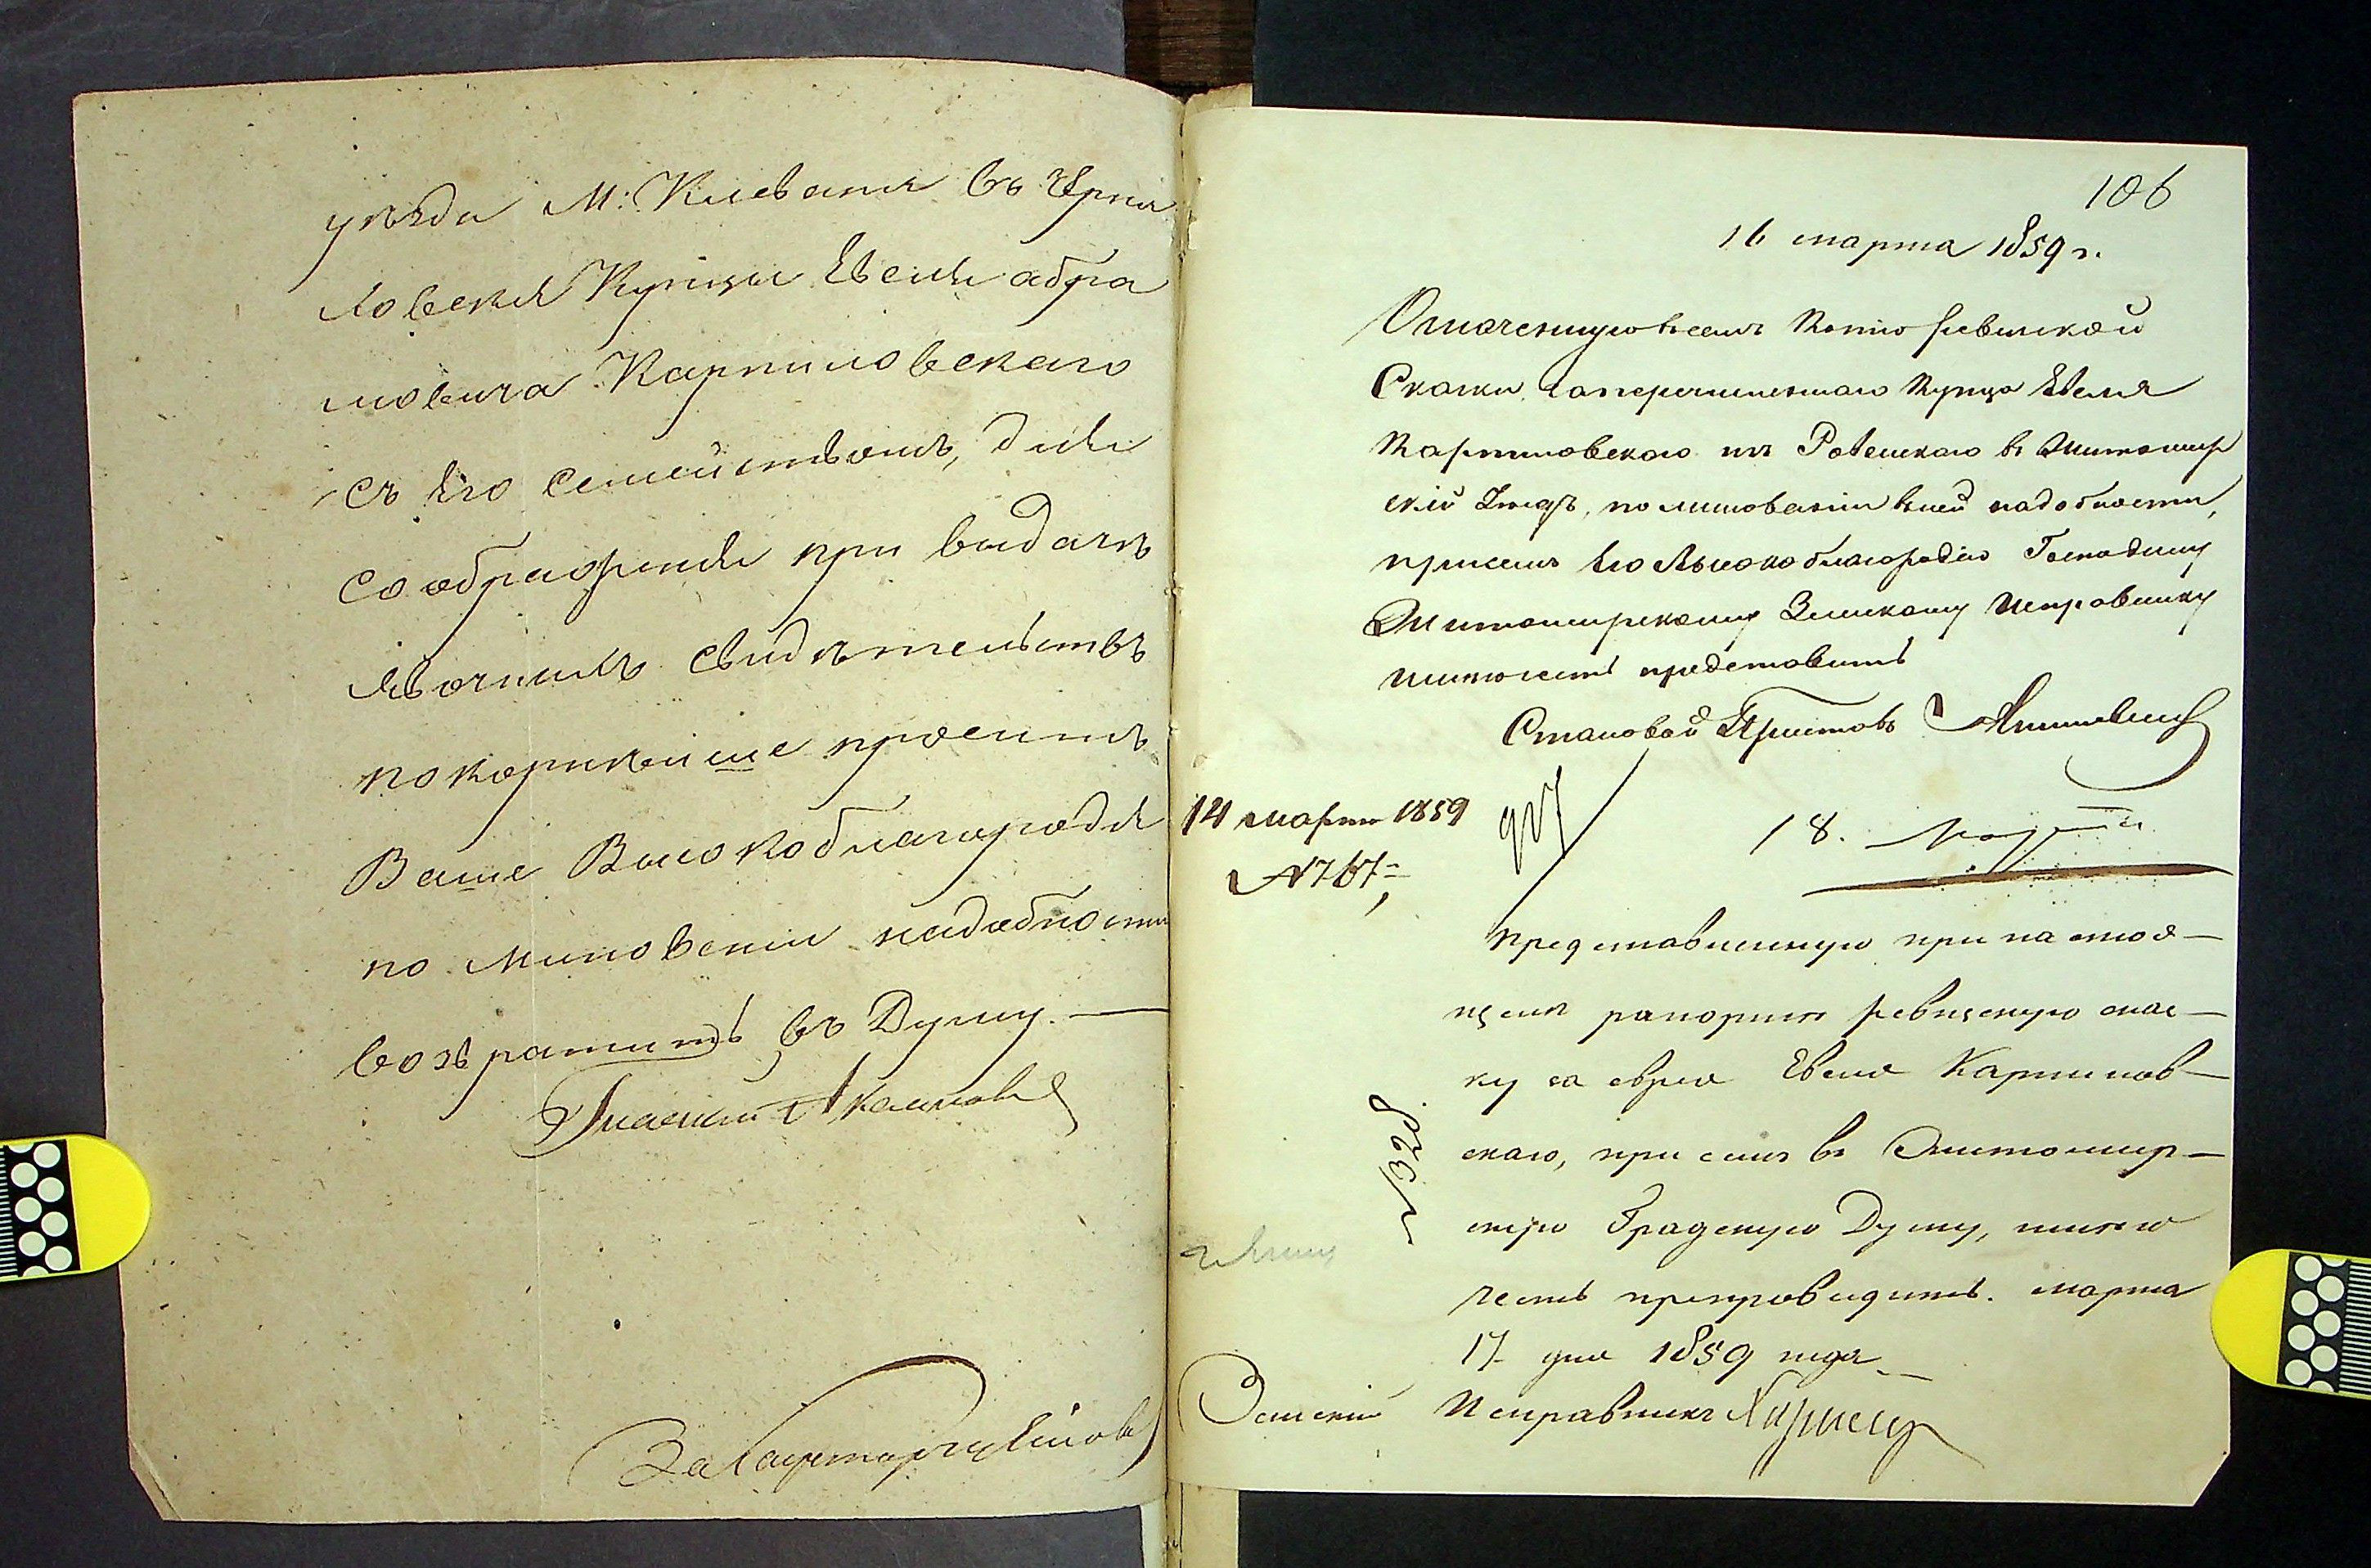 уѣзда М: Клеваня въ Черня
ловскія Купцы Евеля Абра
мовича Карпиловскаго
съ Его Семействомъ, для
соображенія при выдачѣ
явочныхъ свидѣтельствъ
покорнѣйше проситъ
Ваше Высокоблагородія
по минованіи надобности
возвратить въ Думу. —
Гласный
За Секретаря
106
16 марта 1859 г.
Означенную въ семъ Копію ревизской
Сказки о перечисленнаго Купца Евеля
Карпиловскаго изъ Ровенскаго въ Житомир
скій Уездъ, по минованіи въ ней надобности,
при семъ Его Высокоблагородію Господину
Житомирскому Земскому Исправнику
имѣю честь представить
Становой Приставъ
14 марта 1859
№ 767
907
18. марта
Представленную при настоя-
щемъ рапортѣ ревизскую сказ-
ку на еврея Евеля Карпилов-
скаго, при семъ въ Житомир-
скую Градскую Думу, имѣю
честь препроводить. марта
17 дня 1859 года
№ 328
Земскій Исправникъ